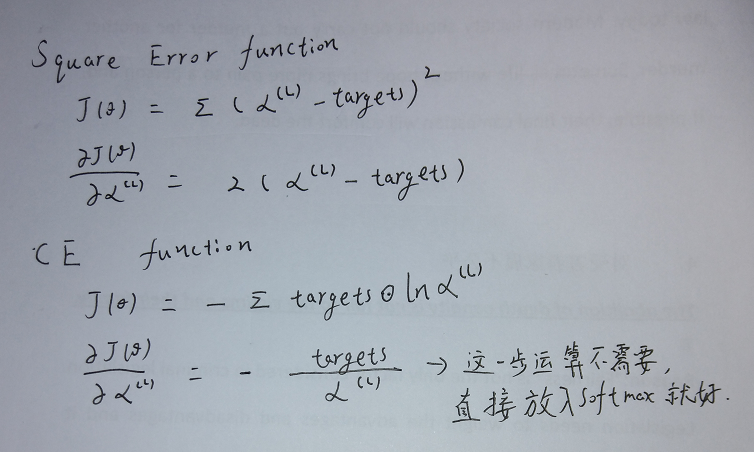 Square Error function
J(θ) = Σ (α^(L) - targets)^2
∂J(θ)/∂α^(L) = 2 (α^(L) - targets)
CE function
J(θ) = - Σ targets ⊙ ln α^(L)
∂J(θ)/∂α^(L) = - targets/α^(L) → 这一步运算不需要,
直接放入softmax 就好.